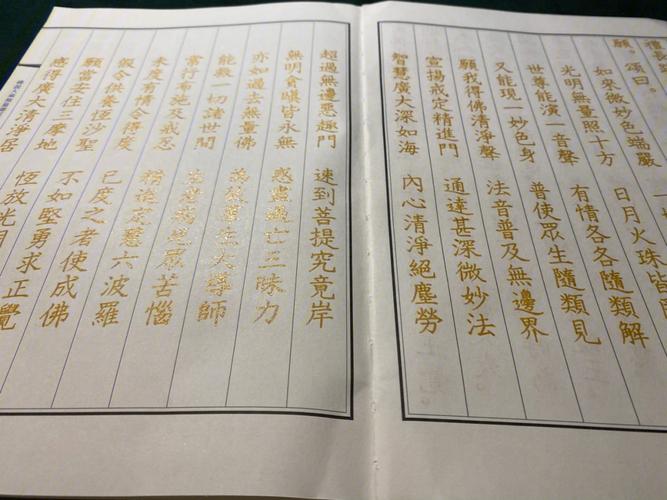 願。頌曰。
如來微妙色端嚴 一
光明無量照十方 日月火珠皆
世尊能演一音聲 有情各各隨類解
又能現一妙色身 普使眾生隨類見
願我得佛清淨聲 法音普及無邊界
宣揚戒定精進門 通達甚深微妙法
智慧廣大深如海 內心清淨絕塵勞
超過無邊惡趣門 速到菩提究竟岸
無明貪瞋皆永無 惑盡過亡三昧力
亦如過去無量佛 為彼群生大導師
能救一切諸世間 生老病死眾苦惱
常行布施及戒忍 精進定慧六波羅
未度有情令得度 已度之者使成佛
假令供養恆沙聖 不如堅勇求正覺
願當安住三摩地 恆放光明
感得廣大清淨居